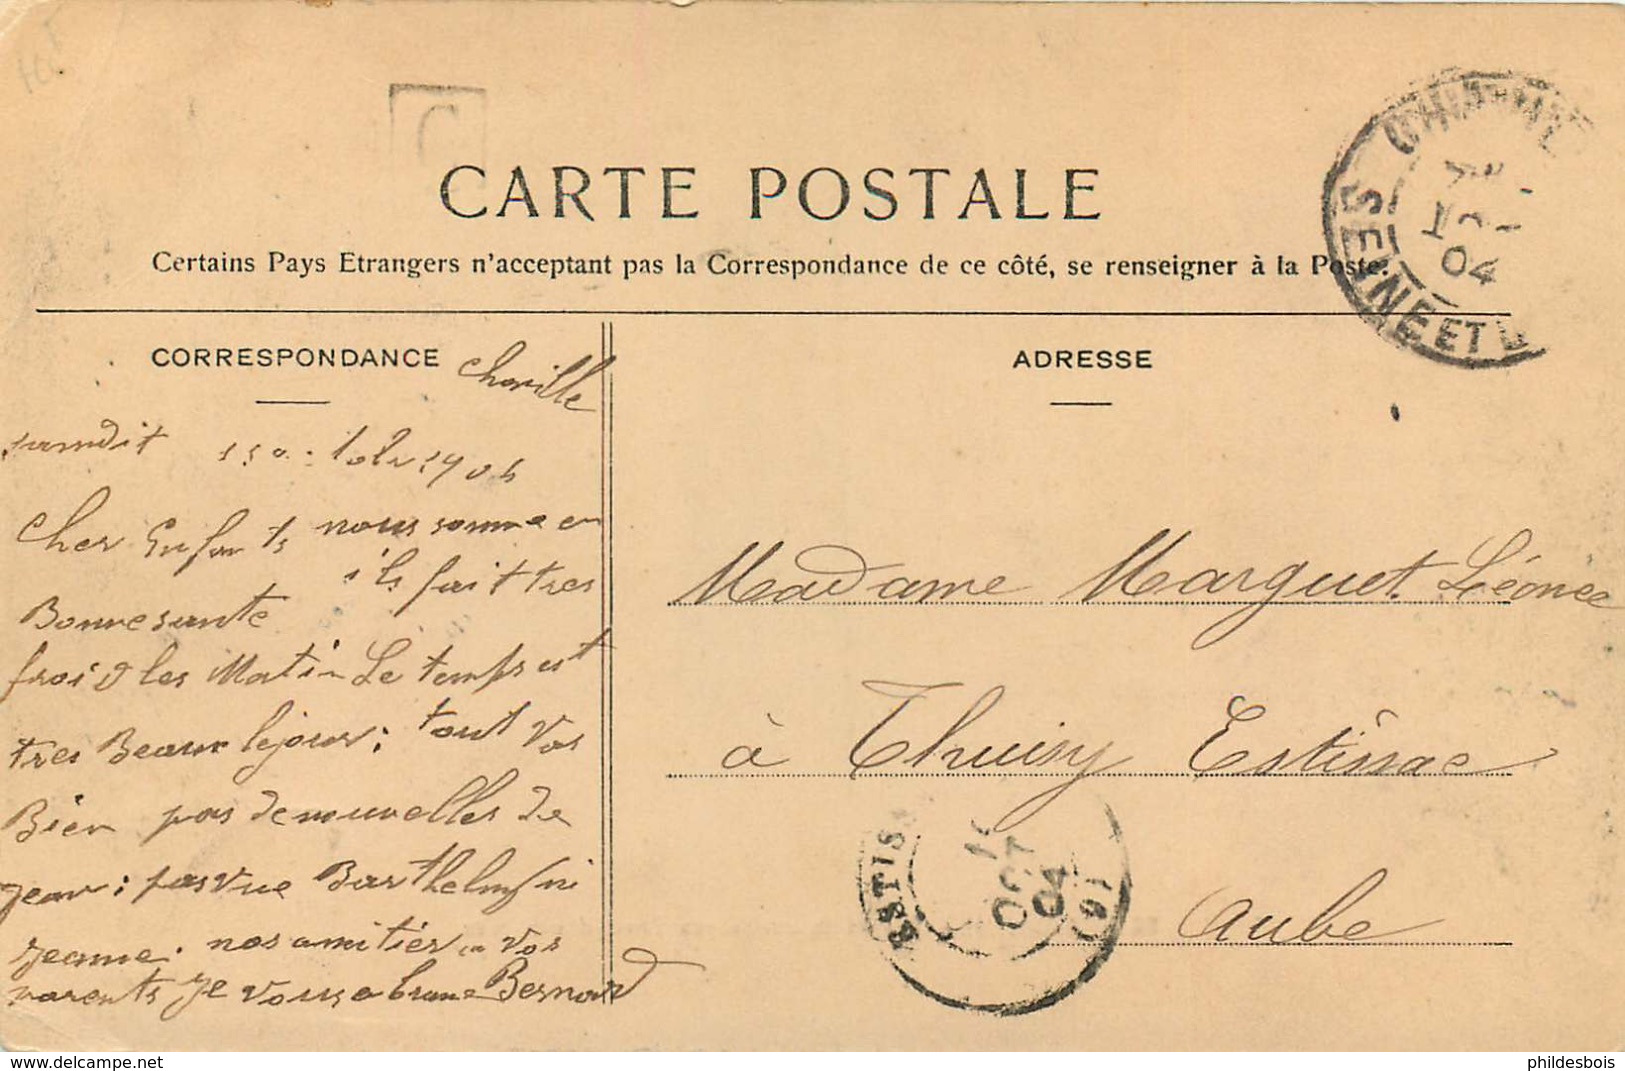 C
CARTE POSTALE
Certains Pays Etrangers n'acceptant pas la Correspondance de ce côté, se renseigner à la Poste.
SEINE ET
04
CORRESPONDANCE
Chaville
samdit 15 1904
Cher Enfants nous somme en
Bonne sante ils fait tres
froid les Matin Le temps est
tres Beaux le jour; tout Vas
Bien pas de nouvelles de
Jean; pas vue Barthelm ni
Jeanne. nos amitiés a vos
parents Je vous Bernard
ADRESSE
Madame Marguet Léonée
à Thuisy Estissac
Aube
ESTIS
OCT
04
delcampe.net
phildesbois